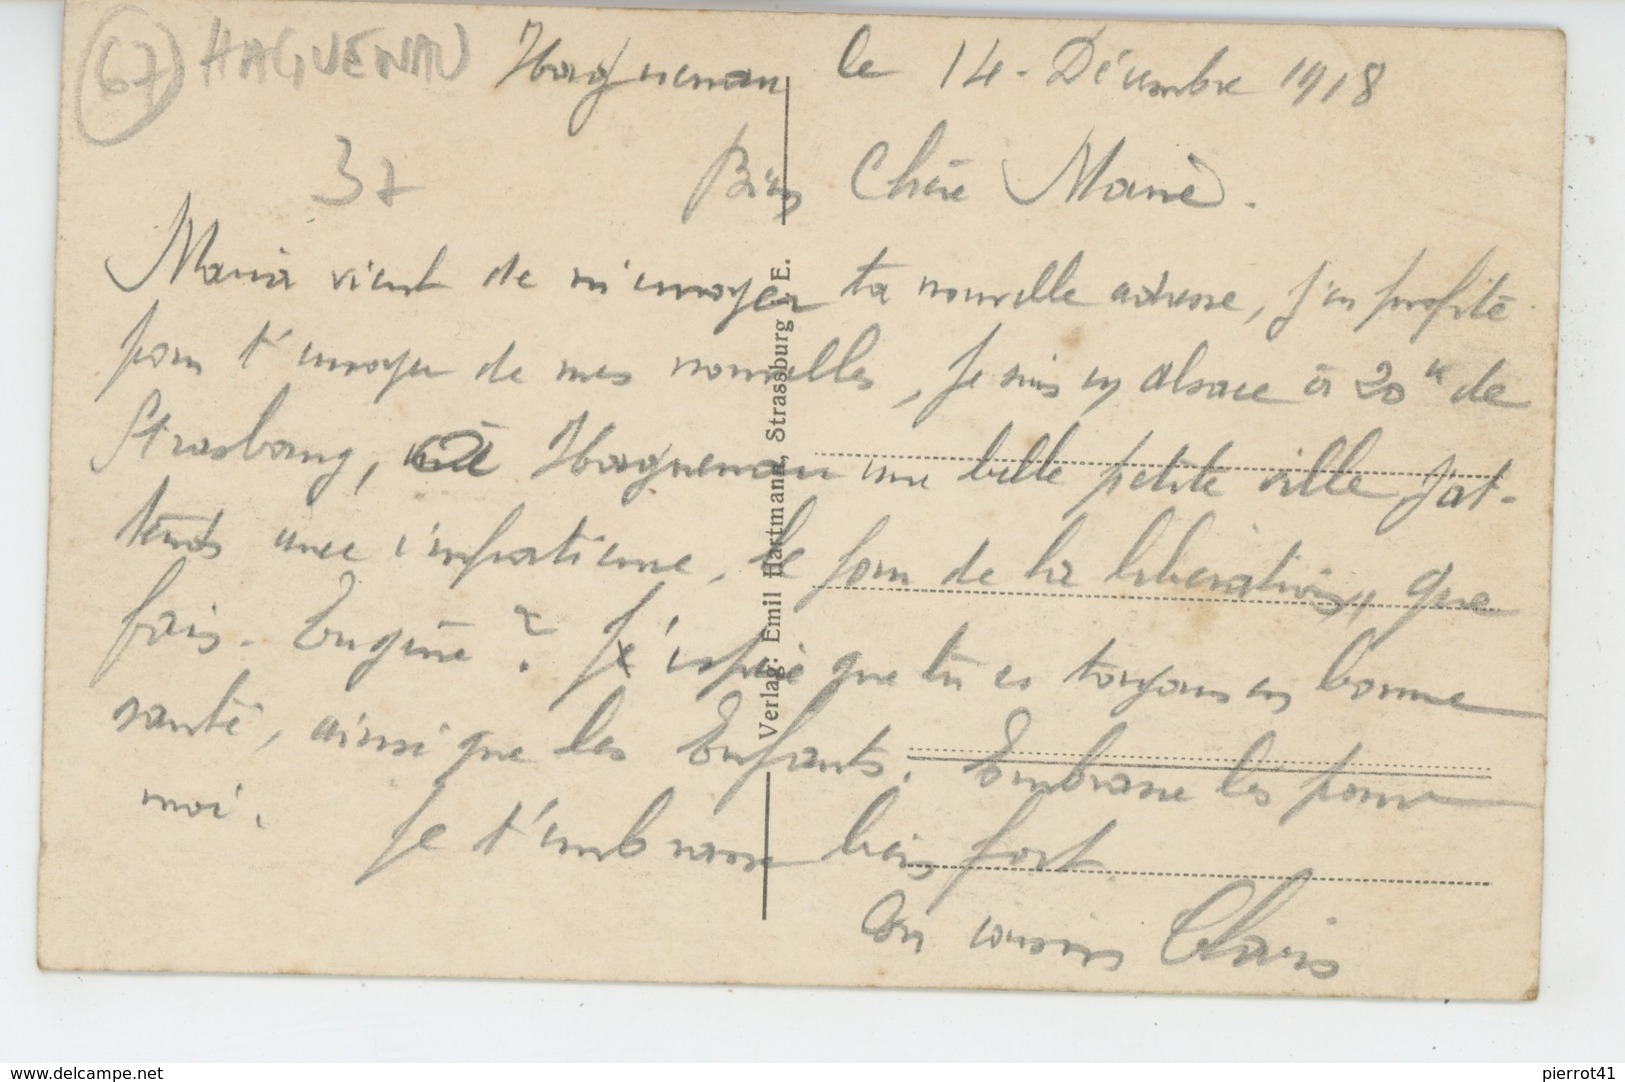 67 HAGUENAU Haguenau le 14 - Décembre 1918
37 Bien Chère Marie.
Maria vient de m'envoyer ta nouvelle adresse, j'en profite
pour t'envoyer de mes nouvelles, je suis en Alsace à 20 k de
Strasbourg, Haguenau une belle petite ville J'at-
tends avec impatience, le jour de la libération, que
fais. Eugène ? J'espère que tu es toujours en bonne
santé, ainsi que les Enfants. Embrasse les pour
moi.
Je t'embrasse bien fort
Ton cousin
Verlag: Emil Hartmann, Strassburg i. E.
www.delcampe.net
pierrot41